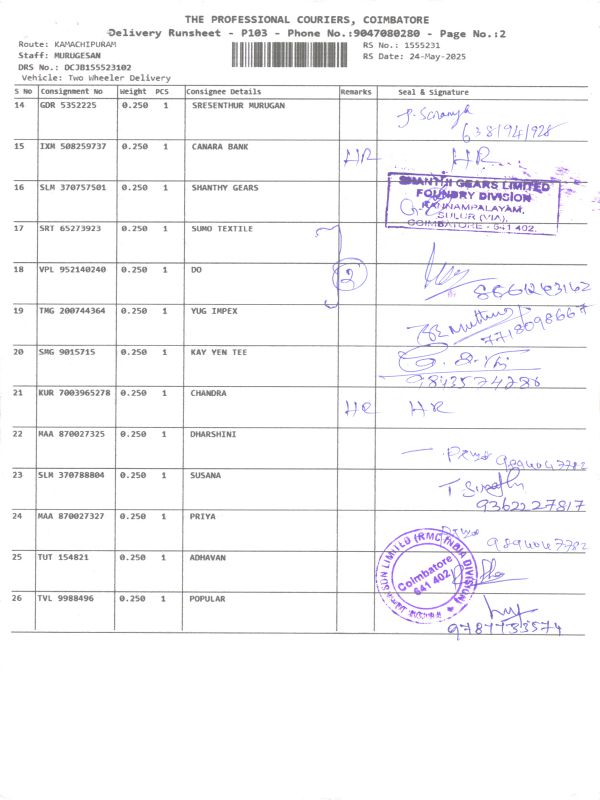 THE PROFESSIONAL COURIERS, COIMBATORE
Delivery Runsheet - P103 - Phone No.:9047080280 - Page No.:2
Route: KAMACHIPURAM
RS No.: 1555231
Staff: MURUGESAN
RS Date: 24-May-2025
DRS No.: DCJB155523102
Vehicle: Two Wheeler Delivery
S No Consignment No Weight PCS Consignee Details Remarks Seal & Signature
14 GDR 5352225 0.250 1 SRESENTHUR MURUGAN
15 IXM 508259737 0.250 1 CANARA BANK HR HR
16 SLM 370757501 0.250 1 SHANTHY GEARS
SHANTHI GEARS LIMITED
FOUNDRY DIVISION
KANNAMPALAYAM,
SULUR (VIA),
COIMBATORE - 641 402.
17 SRT 65273923 0.250 1 SUMO TEXTILE
18 VPL 952140240 0.250 1 DO 2
19 TMG 200744364 0.250 1 YUG IMPEX
7718098667
20 SMG 9015715 0.250 1 KAY YEN TEE
9843574286
21 KUR 7003965278 0.250 1 CHANDRA HR HR
22 MAA 870027325 0.250 1 DHARSHINI
23 SLM 370788804 0.250 1 SUSANA
9362227817
24 MAA 870027327 0.250 1 PRIYA
25 TUT 154821 0.250 1 ADHAVAN
SON LIMITED (RMC INDIA DIVISION)
Coimbatore
641 402
26 TVL 9988496 0.250 1 POPULAR
9787753574